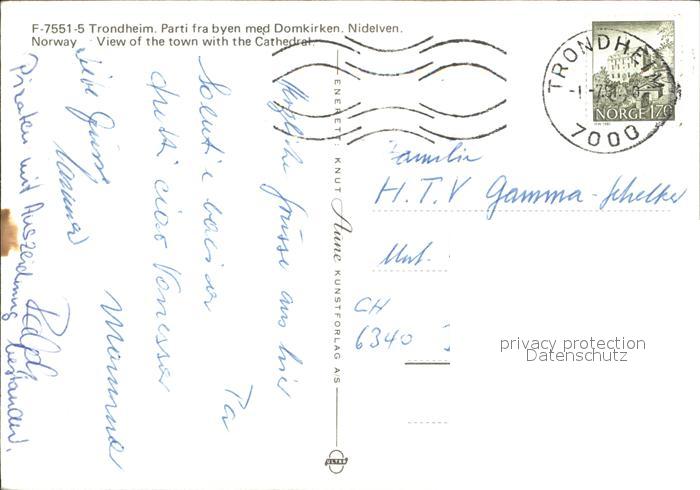 F-7551-5 Trondheim. Parti fra byen med Domkirken. Nidelven.
Norway. View of the town with the Cathedral.
Herzliche Grüsse aus hier
Pa
Saluti e baci a
tutti ciao Vanessa
Mamma
Liebe Grüsse
Ralph
Piraten mit Auszeichnung bestanden.
ENERETT: KNUT Aune KUNSTFORLAG A/S
ULTRA
TRONDHEIM
7000
NORGE 170
Familie
H. T. V Gamma-Schelker
Unt.
CH
6340
privacy protection
Datenschutz